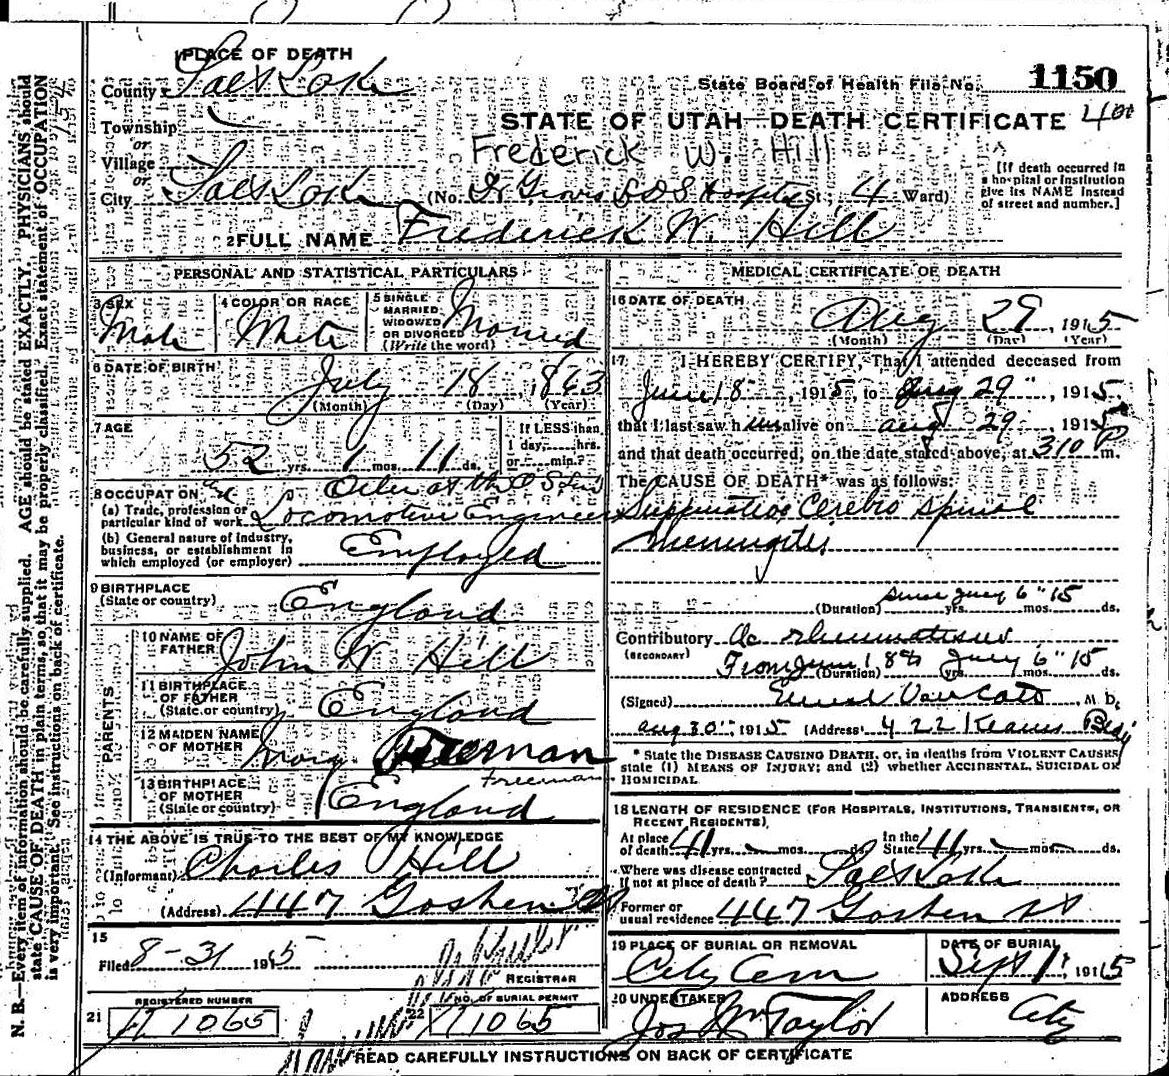 N. B.—Every item of information should be carefully supplied. AGE should be stated EXACTLY. PHYSICIANS should
state CAUSE OF DEATH in plain terms, so that it may be properly classified. Exact statement of OCCUPATION
is very important. See instructions on back of certificate.
1 PLACE OF DEATH
County Salt Lake
State Board of Health File No. 1150
Township
or
Village
or
City Salt Lake
STATE OF UTAH—DEATH CERTIFICATE
Frederick W. Hill
(No. Dr Groves L D S Hospital St; 4 Ward)
[If death occurred in
a hospital or institution
give its NAME instead
of street and number.]
2 FULL NAME Frederick W. Hill
PERSONAL AND STATISTICAL PARTICULARS
3 SEX
Male
4 COLOR OR RACE
White
5 SINGLE
MARRIED
WIDOWED
OR DIVORCED
(Write the word)
Married
6 DATE OF BIRTH
July 18, 1863
(Month) (Day) (Year)
7 AGE
52 yrs. 1 mos. 11 ds.
If LESS than
1 day, hrs.
or min.?
8 OCCUPATION
(a) Trade, profession or
particular kind of work
Oiler at the O S L
and Locomotive Engineer
(b) General nature of industry,
business, or establishment in
which employed (or employer)
Employed
9 BIRTHPLACE
(State or country)
England
PARENTS
10 NAME OF
FATHER
John W Hill
11 BIRTHPLACE
OF FATHER
(State or country)
England
12 MAIDEN NAME
OF MOTHER
Mary Freeman
Freeman
13 BIRTHPLACE
OF MOTHER
(State or country)
England
14 THE ABOVE IS TRUE TO THE BEST OF MY KNOWLEDGE
(Informant) Charles Hill
(Address) 447 Goshen St
15
Filed 8-31 1915
REGISTRAR
REGISTERED NUMBER
21 H 1065
NO. OF BURIAL PERMIT
22 H 1065
MEDICAL CERTIFICATE OF DEATH
16 DATE OF DEATH
Aug 29, 1915
(Month) (Day) (Year)
17 I HEREBY CERTIFY, That I attended deceased from
June 18, 1915, to Aug 29", 1915,
that I last saw him alive on Aug 29, 1915
and that death occurred, on the date stated above, at 310 P m.
The CAUSE OF DEATH* was as follows:
Suppurative Cerebro spinal
meningitis
since July 6" 15
(Duration) yrs. mos. ds.
Contributory Ac rheumatism
(SECONDARY)
From June 18th July 6" 15
(Duration) yrs. mos. ds.
(Signed) Van Cott, M. D.
Aug 30", 1915 (Address) 422 Kearns Bldg
* State the DISEASE CAUSING DEATH, or, in deaths from VIOLENT CAUSES
state (1) MEANS OF INJURY; and (2) whether ACCIDENTAL, SUICIDAL OR
HOMICIDAL.
18 LENGTH OF RESIDENCE (FOR HOSPITALS, INSTITUTIONS, TRANSIENTS, OR
RECENT RESIDENTS).
At place
of death 41 yrs. mos. ds.
In the
State 41 yrs. mos. ds.
Where was disease contracted
if not at place of death? Salt Lake
Former or
usual residence 447 Goshen St
19 PLACE OF BURIAL OR REMOVAL
City Cem
DATE OF BURIAL
Sept 1, 1915
20 UNDERTAKER
Jos Wm Taylor
ADDRESS
City
READ CAREFULLY INSTRUCTIONS ON BACK OF CERTIFICATE